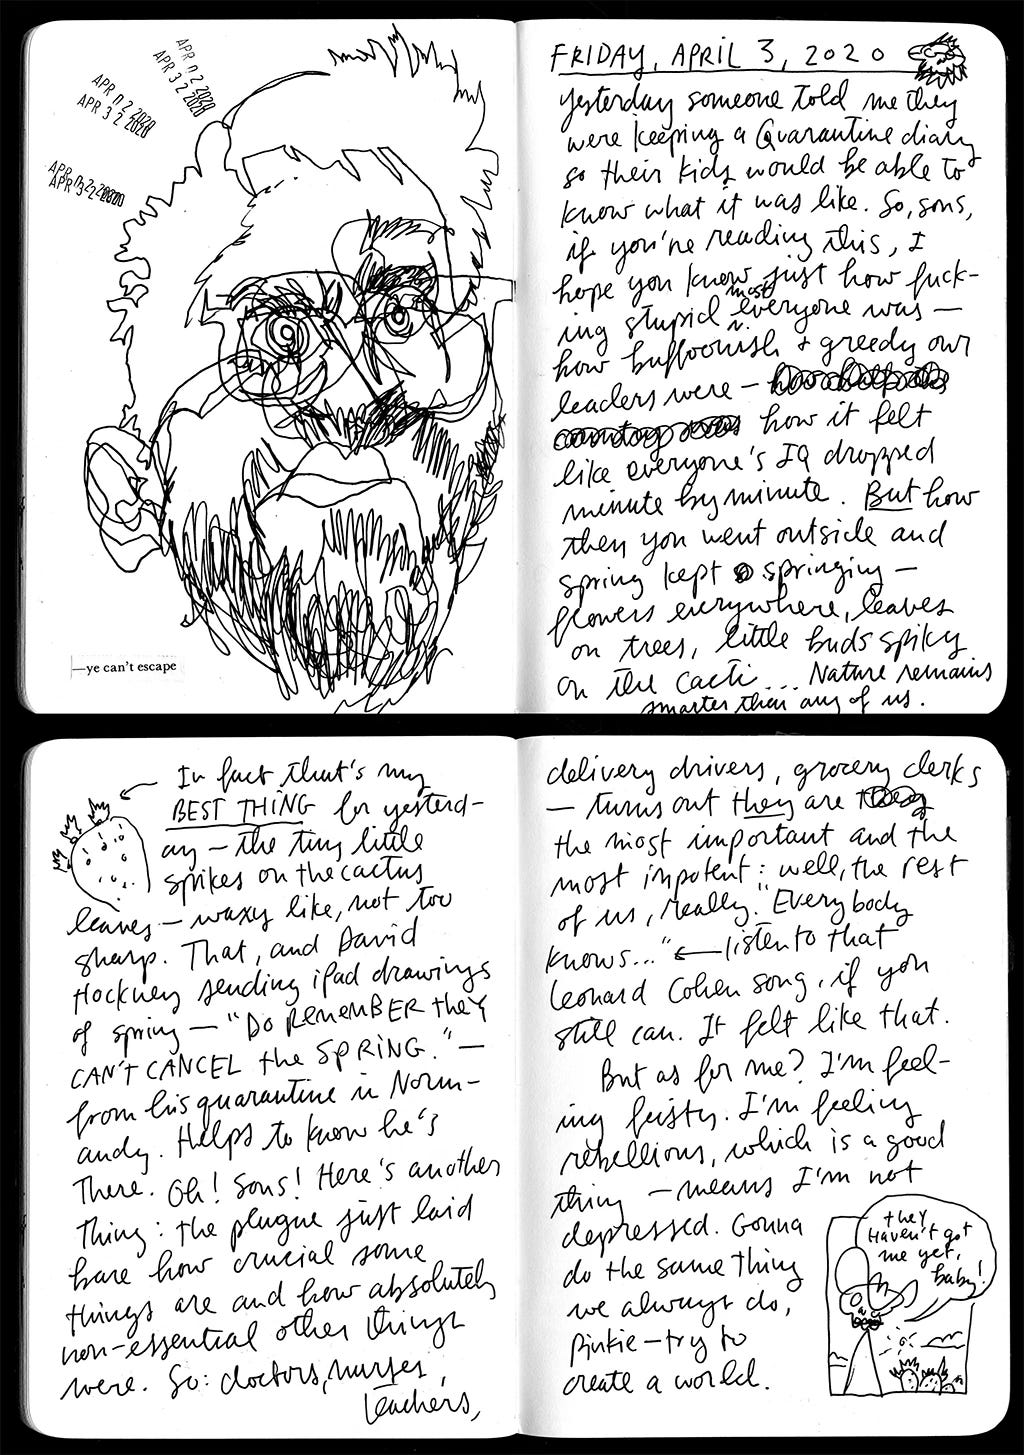 APR 02 2020
APR 3 2 2020
APR 02 2020
APR 3 2 2020
APR 02 2020
APR 3 2 2020
—ye can't escape
FRIDAY, APRIL 3, 2020
yesterday someone told me they
were keeping a Quarantine diary
so their kids would be able to
know what it was like. So, sons,
if you're reading this, I
hope you know just how fuck-
ing stupid most everyone was —
how buffoonish + greedy our
leaders were —
how it felt
like everyone's IQ dropped
minute by minute. But how
then you went outside and
spring kept springing —
flowers everywhere, leaves
on trees, little buds spiky
on the cacti... Nature remains
smarter than any of us.
In fact that's my
BEST THING for yesterd-
ay — the tiny little
spikes on the cactus
leaves — waxy like, not too
sharp. That, and David
Hockney sending iPad drawings
of spring — "DO REMEMBER they
CAN'T CANCEL the SPRING." —
from his quarantine in Norm-
andy. Helps to know he's
There. Oh! Sons! Here's another
Thing: the plague just laid
bare how crucial some
things are and how absolutely
non-essential other things
were. So: doctors, nurses,
teachers,
delivery drivers, grocery clerks
— turns out they are
the most important and the
most impotent: well, the rest
of us, really. "Everybody
knows..." ← listen to that
Leonard Cohen song, if you
still can. It felt like that.
But as for me? I'm feel-
ing feisty. I'm feeling
rebellious, which is a good
thing — means I'm not
depressed. Gonna
do the same thing
we always do,
Pinkie — try to
create a world.
they
Haven't got
me yet,
baby!